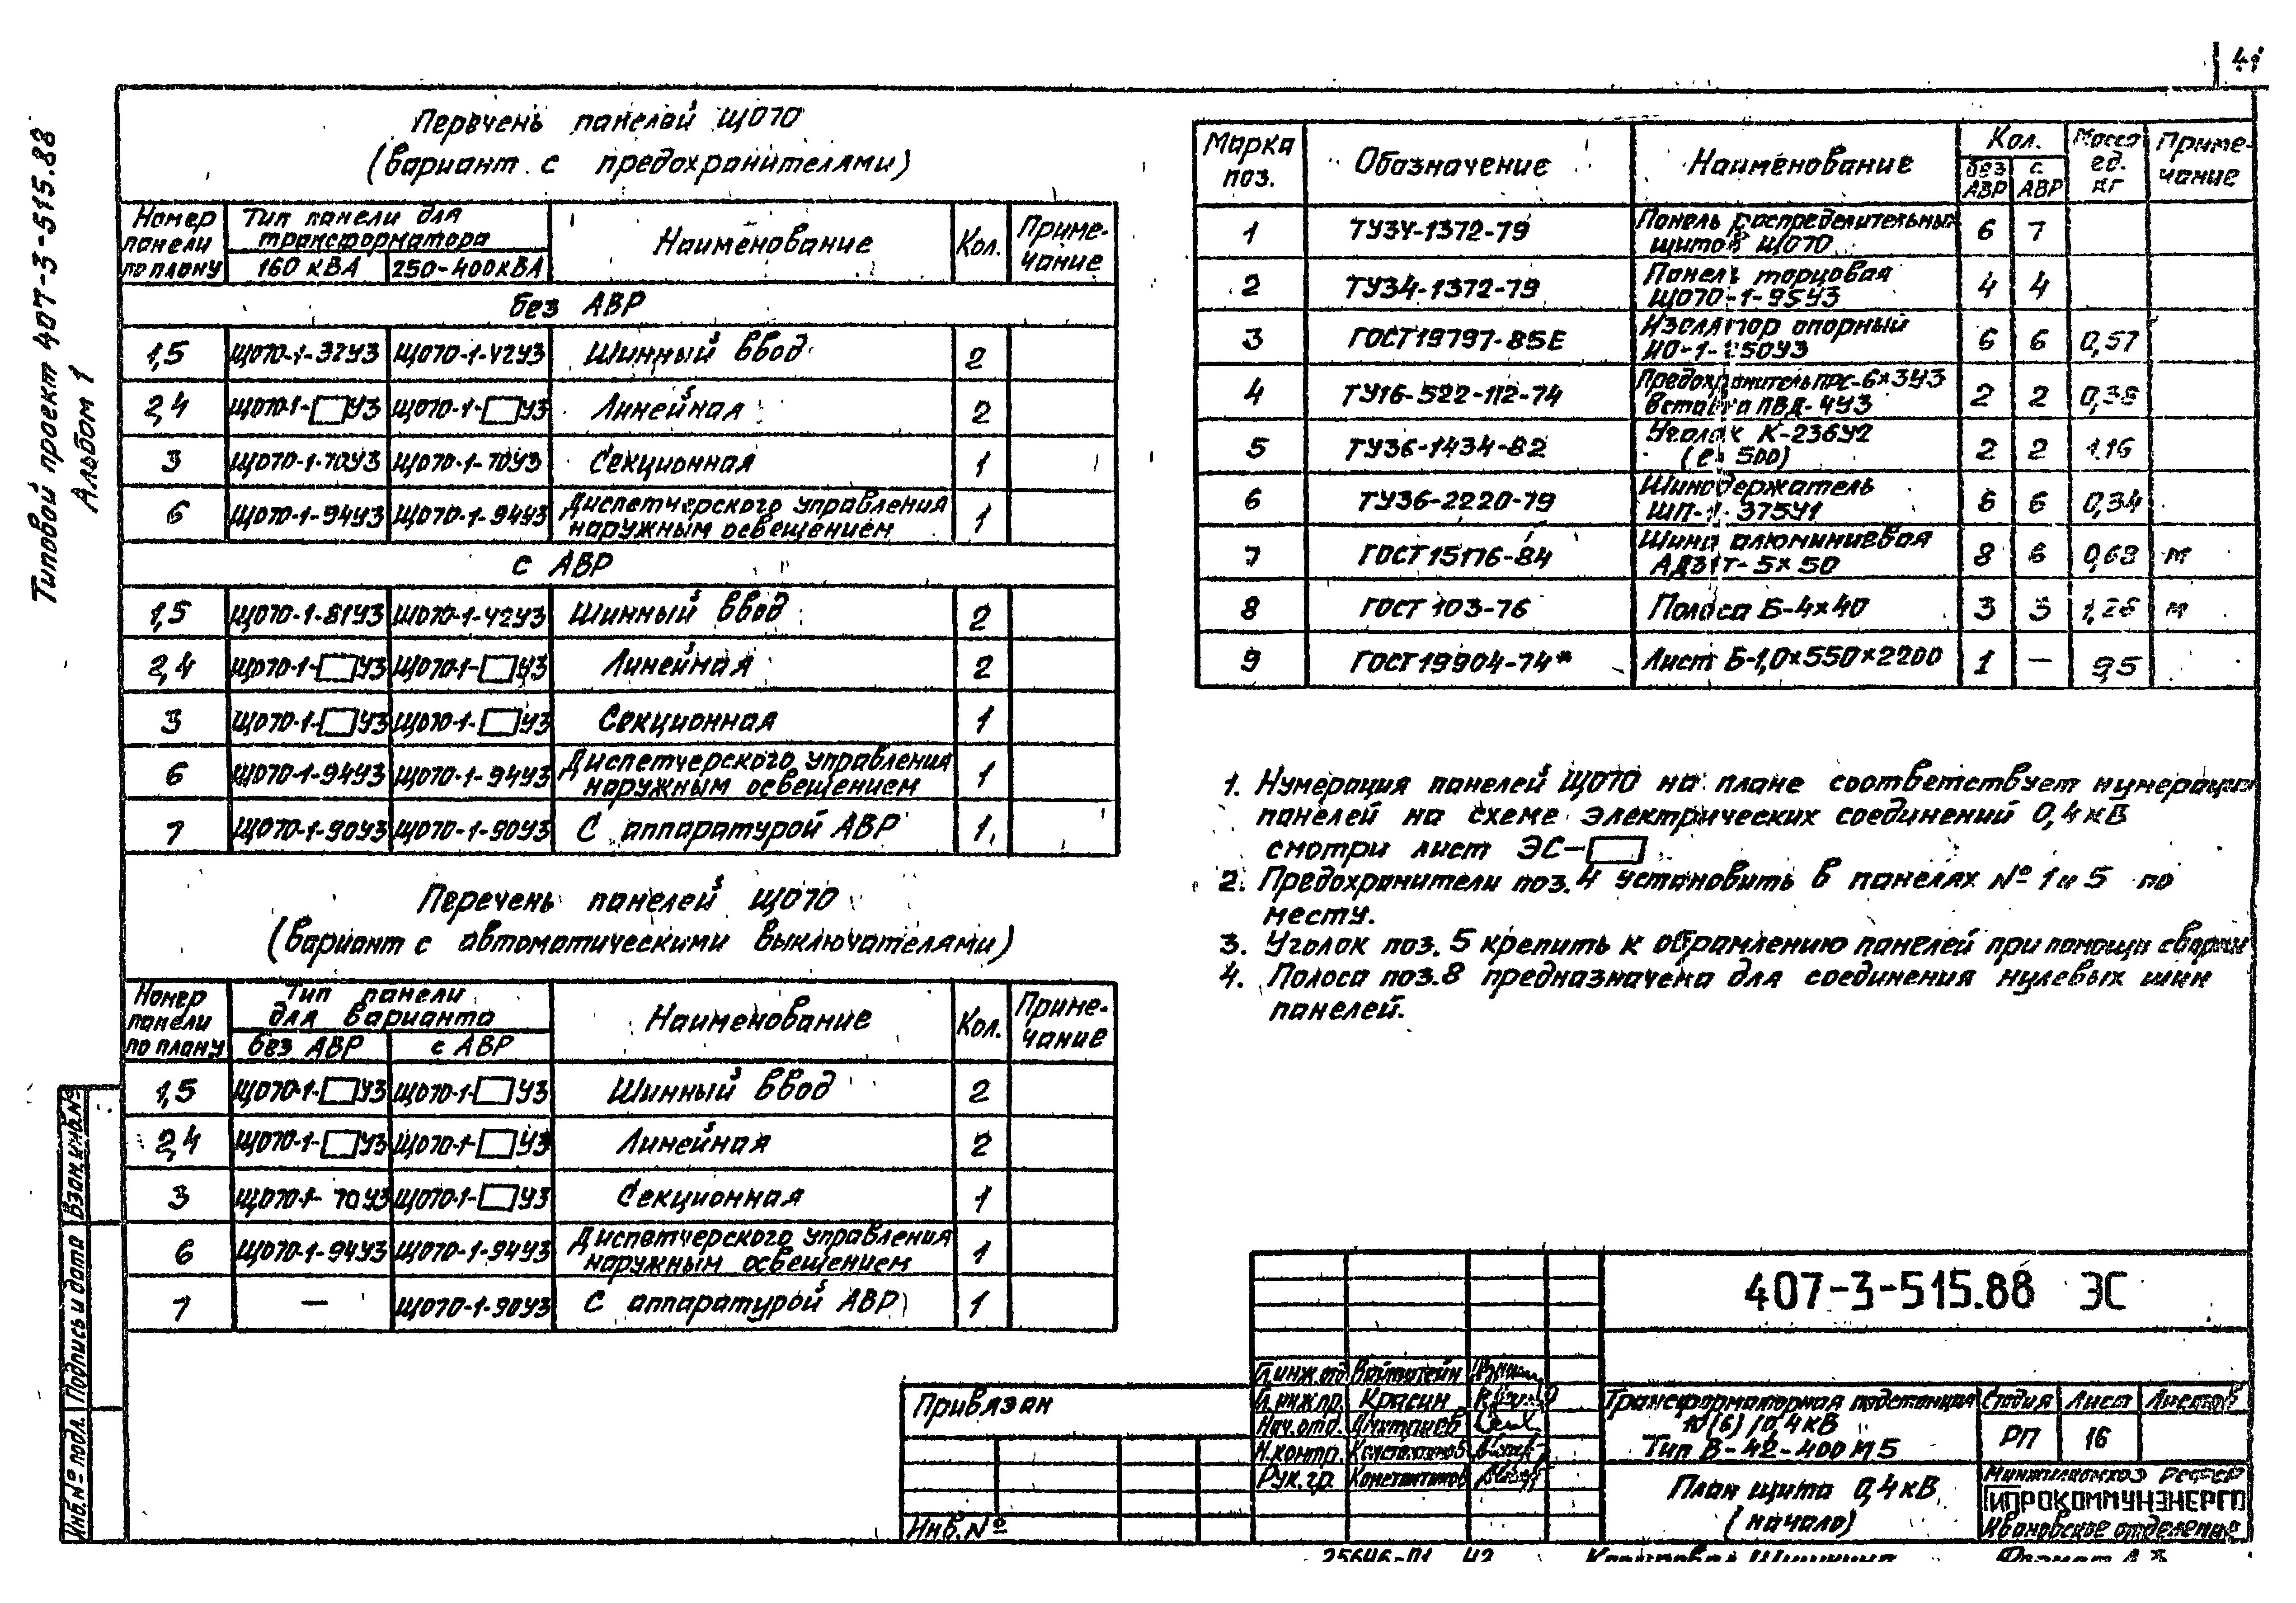 41
Типовой проект 407-3-515.88
Альбом 1
Перечень панелей ЩО70
(вариант с предохранителями)
Номер панели по плану | Тип панели для трансформатора | Наименование | Кол. | Примечание
160 кВА | 250-400кВА
без АВР
1,5 | ЩО70-1-32У3 | ЩО70-1-42У3 | Шинный ввод | 2
2,4 | ЩО70-1-□У3 | ЩО70-1-□У3 | Линейная | 2
3 | ЩО70-1-70У3 | ЩО70-1-70У3 | Секционная | 1
6 | ЩО70-1-94У3 | ЩО70-1-94У3 | Диспетчерского управления наружным освещением | 1
с АВР
1,5 | ЩО70-1-81У3 | ЩО70-1-42У3 | Шинный ввод | 2
2,4 | ЩО70-1-□У3 | ЩО70-1-□У3 | Линейная | 2
3 | ЩО70-1-□У3 | ЩО70-1-□У3 | Секционная | 1
6 | ЩО70-1-94У3 | ЩО70-1-94У3 | Диспетчерского управления наружным освещением | 1
7 | ЩО70-1-90У3 | ЩО70-1-90У3 | С аппаратурой АВР | 1
Перечень панелей ЩО70
(вариант с автоматическими выключателями)
Номер панели по плану | Тип панели для варианта | Наименование | Кол. | Примечание
без АВР | с АВР
1,5 | ЩО70-1-□У3 | ЩО70-1-□У3 | Шинный ввод | 2
2,4 | ЩО70-1-□У3 | ЩО70-1-□У3 | Линейная | 2
3 | ЩО70-1-70У3 | ЩО70-1-□У3 | Секционная | 1
6 | ЩО70-1-94У3 | ЩО70-1-94У3 | Диспетчерского управления наружным освещением | 1
7 | — | ЩО70-1-90У3 | С аппаратурой АВР | 1
Марка поз. | Обозначение | Наименование | Кол. | Масса ед. кг | Примечание
без АВР | с АВР
1 | ТУ34-1372-79 | Панель распределительных щитов ЩО70 | 6 | 7
2 | ТУ34-1372-79 | Панель торцовая ЩО70-1-95У3 | 4 | 4
3 | ГОСТ19797-85Е | Изолятор опорный ИО-1-250У3 | 6 | 6 | 0,57
4 | ТУ16-522-112-74 | Предохранитель ПРС-6×3У3 вставка ПВД-4У3 | 2 | 2 | 0,38
5 | ТУ36-1434-82 | Уголок К-236У2 (ℓ=500) | 2 | 2 | 1,16
6 | ТУ36-2220-79 | Шинодержатель ШП-1-375У1 | 6 | 6 | 0,34
7 | ГОСТ15176-84 | Шина алюминиевая АД31Т-5×50 | 8 | 6 | 0,68 | м
8 | ГОСТ 103-76 | Полоса Б-4×40 | 3 | 3 | 1,26 | м
9 | ГОСТ19904-74* | Лист Б-1,0×550×2200 | 1 | — | 9,5
1. Нумерация панелей ЩО70 на плане соответствует нумерации
панелей на схеме электрических соединений 0,4кВ
смотри лист ЭС-□.
2. Предохранители поз.4 установить в панелях № 1 и 5 по
месту.
3. Уголок поз. 5 крепить к обрамлению панелей при помощи сварки
4. Полоса поз.8 предназначена для соединения нулевых шин
панелей.
Инв.№ подл. | Подпись и дата | Взам.инв.№
Привязан
Инв.№
407-3-515.88 ЭС
Гл.инж.отд. Вайтштейн
Гл.инж.пр. Красин
Нач.отд. Дмитриев
Н.контр. Константинов
Рук.гр. Константинов
Трансформаторная подстанция
10(6)/0,4кВ
Тип В-42-400М5
Стадия | Лист | Листов
РП | 16
План щита 0,4кВ
(начало)
Минжилкомхоз РСФСР
ГИПРОКОММУНЭНЕРГО
Ивановское отделение
25646-01 42 Копировал Шишкина Формат А3